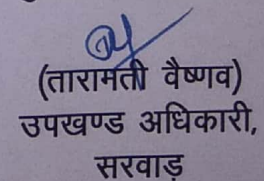 (तारामती वैष्णव)
उपखण्ड अधिकारी,
सरवाड़